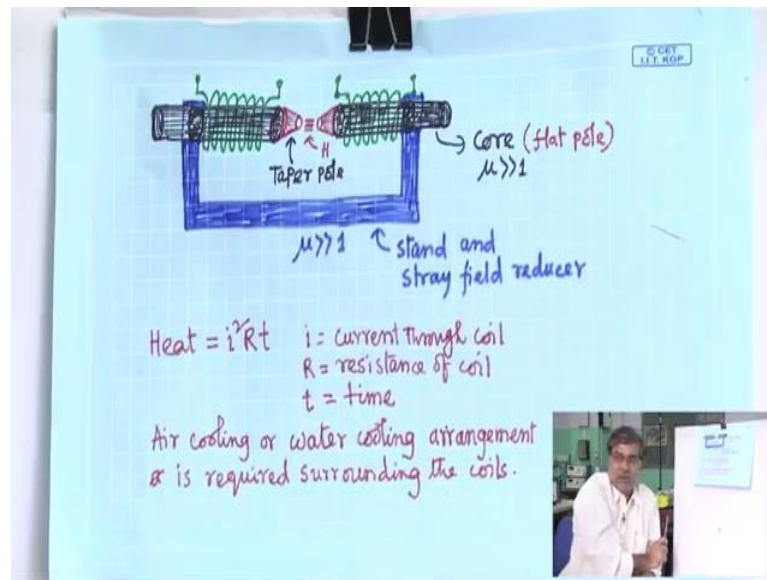 © CET
I.I.T. KGP
H
Taper pole
Core (flat pole)
μ>>1
μ>>1
stand and
stray field reducer
Heat = i²Rt
i = current through coil
R = resistance of coil
t = time
Air cooling or water cooling arrangement
is required surrounding the coils.